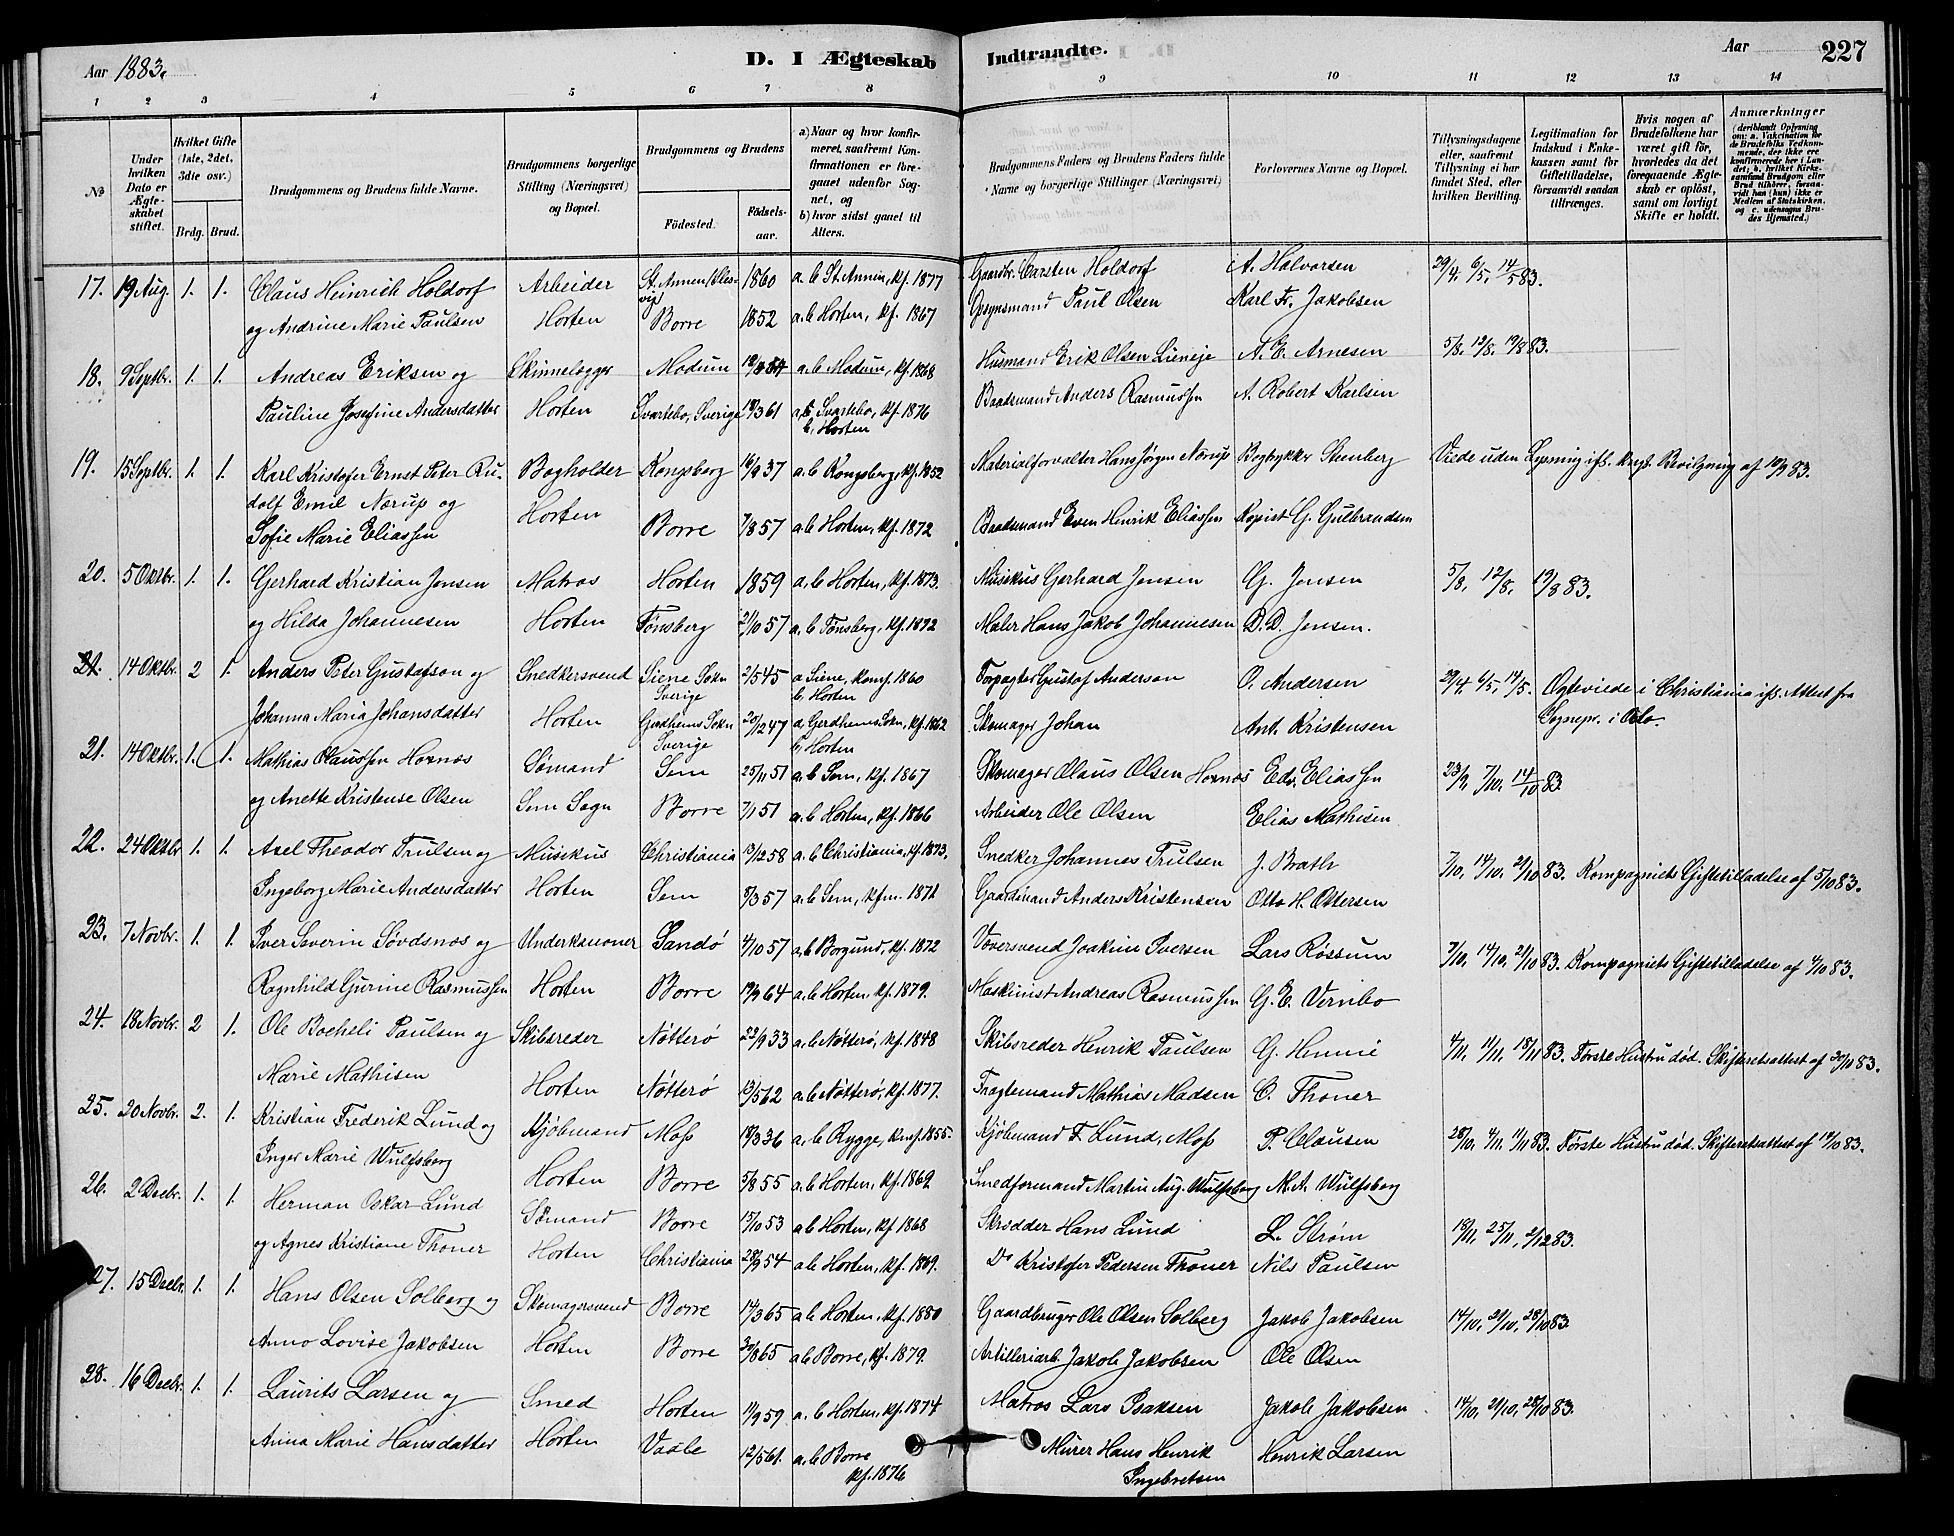 Aar 1883.
D. I Ægteskab Indtraadte.
Aar 227
1 2 3 4 5 6 7 8 9 10 11 12 13 14
No
Under hvilken Dato er Ægteskabet stiftet.
Hvilket Gifte (1ste, 2det, 3die osv.)
Brdg. Brud.
Brudgommens og Brudens fulde Navne.
Brudgommens borgerlige Stilling (Næringsvei) og Bopæl.
Brudgommens og Brudens
Födested.
Födselsaar.
a) Naar og hvor konfirmeret, saafremt Konfirmationen er foregaaet udenfor Sognet, og
b) hvor sidst gaaet til Alters.
Brudgommens Faders og Brudens Faders fulde Navne og borgerlige Stillinger (Næringsvei)
Forlovernes Navne og Bopæl.
Tillysningsdagene eller, saafremt Tillysning ei har fundet Sted, efter hvilken Bevilling.
Legitimation for Indskud i Enkekassen samt for Giftetilladelse, forsaavidt saadan tiltrænges.
Hvis nogen af Brudefolkene har været gift för, hvorledes da det foregaaende Ægteskab er oplöst, samt om lovligt Skifte er holdt.
Anmærkninger (deriblandt Oplysning om: a. Vakcination for de Brudefolks Vedkommende, der ikke ere konfirmerede her i Landet; b. hvilket Kirkesamfund Brudgom eller Brud tilhörer, forsaavidt han (hun) ikke er Medlem af Statskirken, og c. udensogns Brudes Hjemsted.)
17. 19 Aug. 1. 1. Claus Heinrich Holdorf Arbeider St. Annen Slesvig 1860 a. b St. Annen, kf. 1877 Gaardbr. Carsten Holdorf A. Halvorsen 29/4, 6/5, 14/5 83.
og Andrine Marie Paulsen Horten Borre 1852 a. b Horten, kf. 1867 Opsynsmand Paul Olsen Karl Fr. Jakobsen
18. 9 Septbr. 1. 1. Andreas Eriksen og Skinnelægger Modum a. b Modum, kf. 1868 Husmand Erik Olsen Lieneje A. E. Arnesen 5/8. 12/8. 19/8 83.
Pauline Josefine Andersdatter Horten Svartebo, Sverige 18/3 61 a. Svartebo, kf. 1876 b. Horten Baadsmand Anders Rasmussen A. Robert Karlsen
19. 15 Septbr. 1. 1. Karl Kristofer Ernst Peter Rudolf Emil Nørup og Bogholder Kongsberg 16/9 37 a. b Kongsberg, kf. 1852 Materialforvalter Hans Jørgen Nørup Bogtykker Steenberg Viede uden Lysning ifl. kngl. Bevilgning af 10/9 83.
Sofie Marie Eliassen Horten Borre 7/8 57 a. b Horten, kf. 1872 Baadsmand Even Henrik Eliassen Kopist G. Gulbrandsen
20. 5 Oktbr. 1. 1. Gerhard Kristian Jensen Matros Horten 1859 a. b Horten, kf. 1873. Musikus Gerhard Jensen G. Jensen 5/8, 12/8, 19/8 83.
og Hilda Johannesen Horten Tønsberg 21/10 57 a. b Tønsberg, kf. 1872 Maler Hans Jakob Johannesen D. D. Jensen.
21. 14 Oktbr. 2 1. Anders Peter Gustafson og Snedkersvend Siene Sokn Sverige 2/5 45 a Siene, konf. 1860 b. Horten Forpagter Gustaf Anderson O. Andersen 29/4, 6/5, 14/5. Ægteviede i Christiania ifl. Attest fra Sognepr. i Oslo.
Johanna Maria Johansdatter Horten Gerdhems Sokn Sverige 20/12 47 a. Gerdhems Sokn, kf. 1862 b. Horten Skomager Johan Ant. Kristensen
21. 14 Oktbr. 1. 1. Mathias Olaussen Hornæs Sømand Sem 25/11 51 a. b Sem, kf. 1867 Skomager Olaus Olsen Hornæs Edv. Eliassen 23/9, 7/10, 14/10 83.
og Anette Kristense Olsen Sem Sogn Borre 7/1 51 a. b Horten, kf. 1866 Arbeider Ole Olsen Elias Mathisen
22. 24 Oktbr 1. 1. Axel Theodor Trulsen og Musikus Christiania 13/12 58 a. b Christiania, kf. 1873. Snedker Johannes Trulsen J. Brath 7/10, 14/10, 21/10 83. Kompagniets Giftetilladelse af 5/10 83.
Ingeborg Marie Andersdatter Horten Sem 8/3 57 a. b Sem, kfm. 1871 Gaardmand Anders Kristensen Otto H. Ottersen
23. 7 Novbr. 1. 1. Iver Severin Søvdsnæs og Underkanoner Sandø 4/10 57 a. b Borgund, kf. 1872 Væversvend Joakim Iversen Lars Røssum 7/10, 14/10, 21/10 83. Kompagniets Giftetilladelse af 4/10 83.
Ragnhild Gurine Rasmussen Horten Borre 19/9 64 a. b Horten, kf. 1879. Maskinist Andreas Rasmussen G. E. Vernbo
24. 18 Novbr. 2 1. Ole Bocheli Paulsen og Skibsreder Nøtterø 22/9 33 a. b Nøtterø, kf. 1848 Skibsreder Henrik Paulsen G. Hennie 4/11, 11/11, 18/11 83. Første Hustru død. Skifteretsattest af 30/11 83.
Marie Mathisen Horten Nøtterø 13/5 62 a. b Nøtterø, kf. 1877. Fragtemand Mathias Madsen O. Thoner
25. 20 Novbr. 2. 1. Kristian Frederik Lund og Kjøbmand Moss 18/3 36 a. b Rygge, konf. 1855. Kjøbmand F. Lund, Moss P. Clausen 28/10, 4/11, 11/11 83. Første Hustru død. Skifteretsattest af 19/10 83.
Inger Marie Wulfsberg Horten Borre 5/8 55 a. b Horten, kf. 1869 Smedformand Martin Aug. Wulfsberg M. A. Wulfsberg
26. 2 Decbr. 1. 1. Herman Oskar Lund Sømand Borre 15/10 53 a. b Horten, kf 1868 Skrædder Hans Lund L. Strøm 18/11, 25/11, 2/12 83.
og Agnes Kristiane Thoner Horten Christiania 28/9 54 a b Horten, kf. 1869. Do Kristofer Pedersen Thoner Nils Paulsen
27. 15 Decbr. 1. 1. Hans Olsen Solberg og Skomagersvend Borre 14/3 65 a b Horten, kf. 1880 Gaardbruger Ole Olsen Solberg Jakob Jakobsen 14/10, 21/10, 28/10 83
Anna Lovise Jakobsen Horten Borre 30/8 65 a b Borre, kf. 1879. Artilleriarb. Jakob Jakobsen Ole Olsen
28. 16 Decbr. 1. 1. Laurits Larsen og Smed Horten 11/9 59 a. b Horten, kf. 1874 Matros Lars Isaksen Jakob Jakobsen 14/10, 21/10, 28/10 83.
Anna Marie Hansdatter Horten Vaale 12/5 61. a. b Borre kf. 1876 Murer Hans Henrik Ingebretsen Henrik Larsen